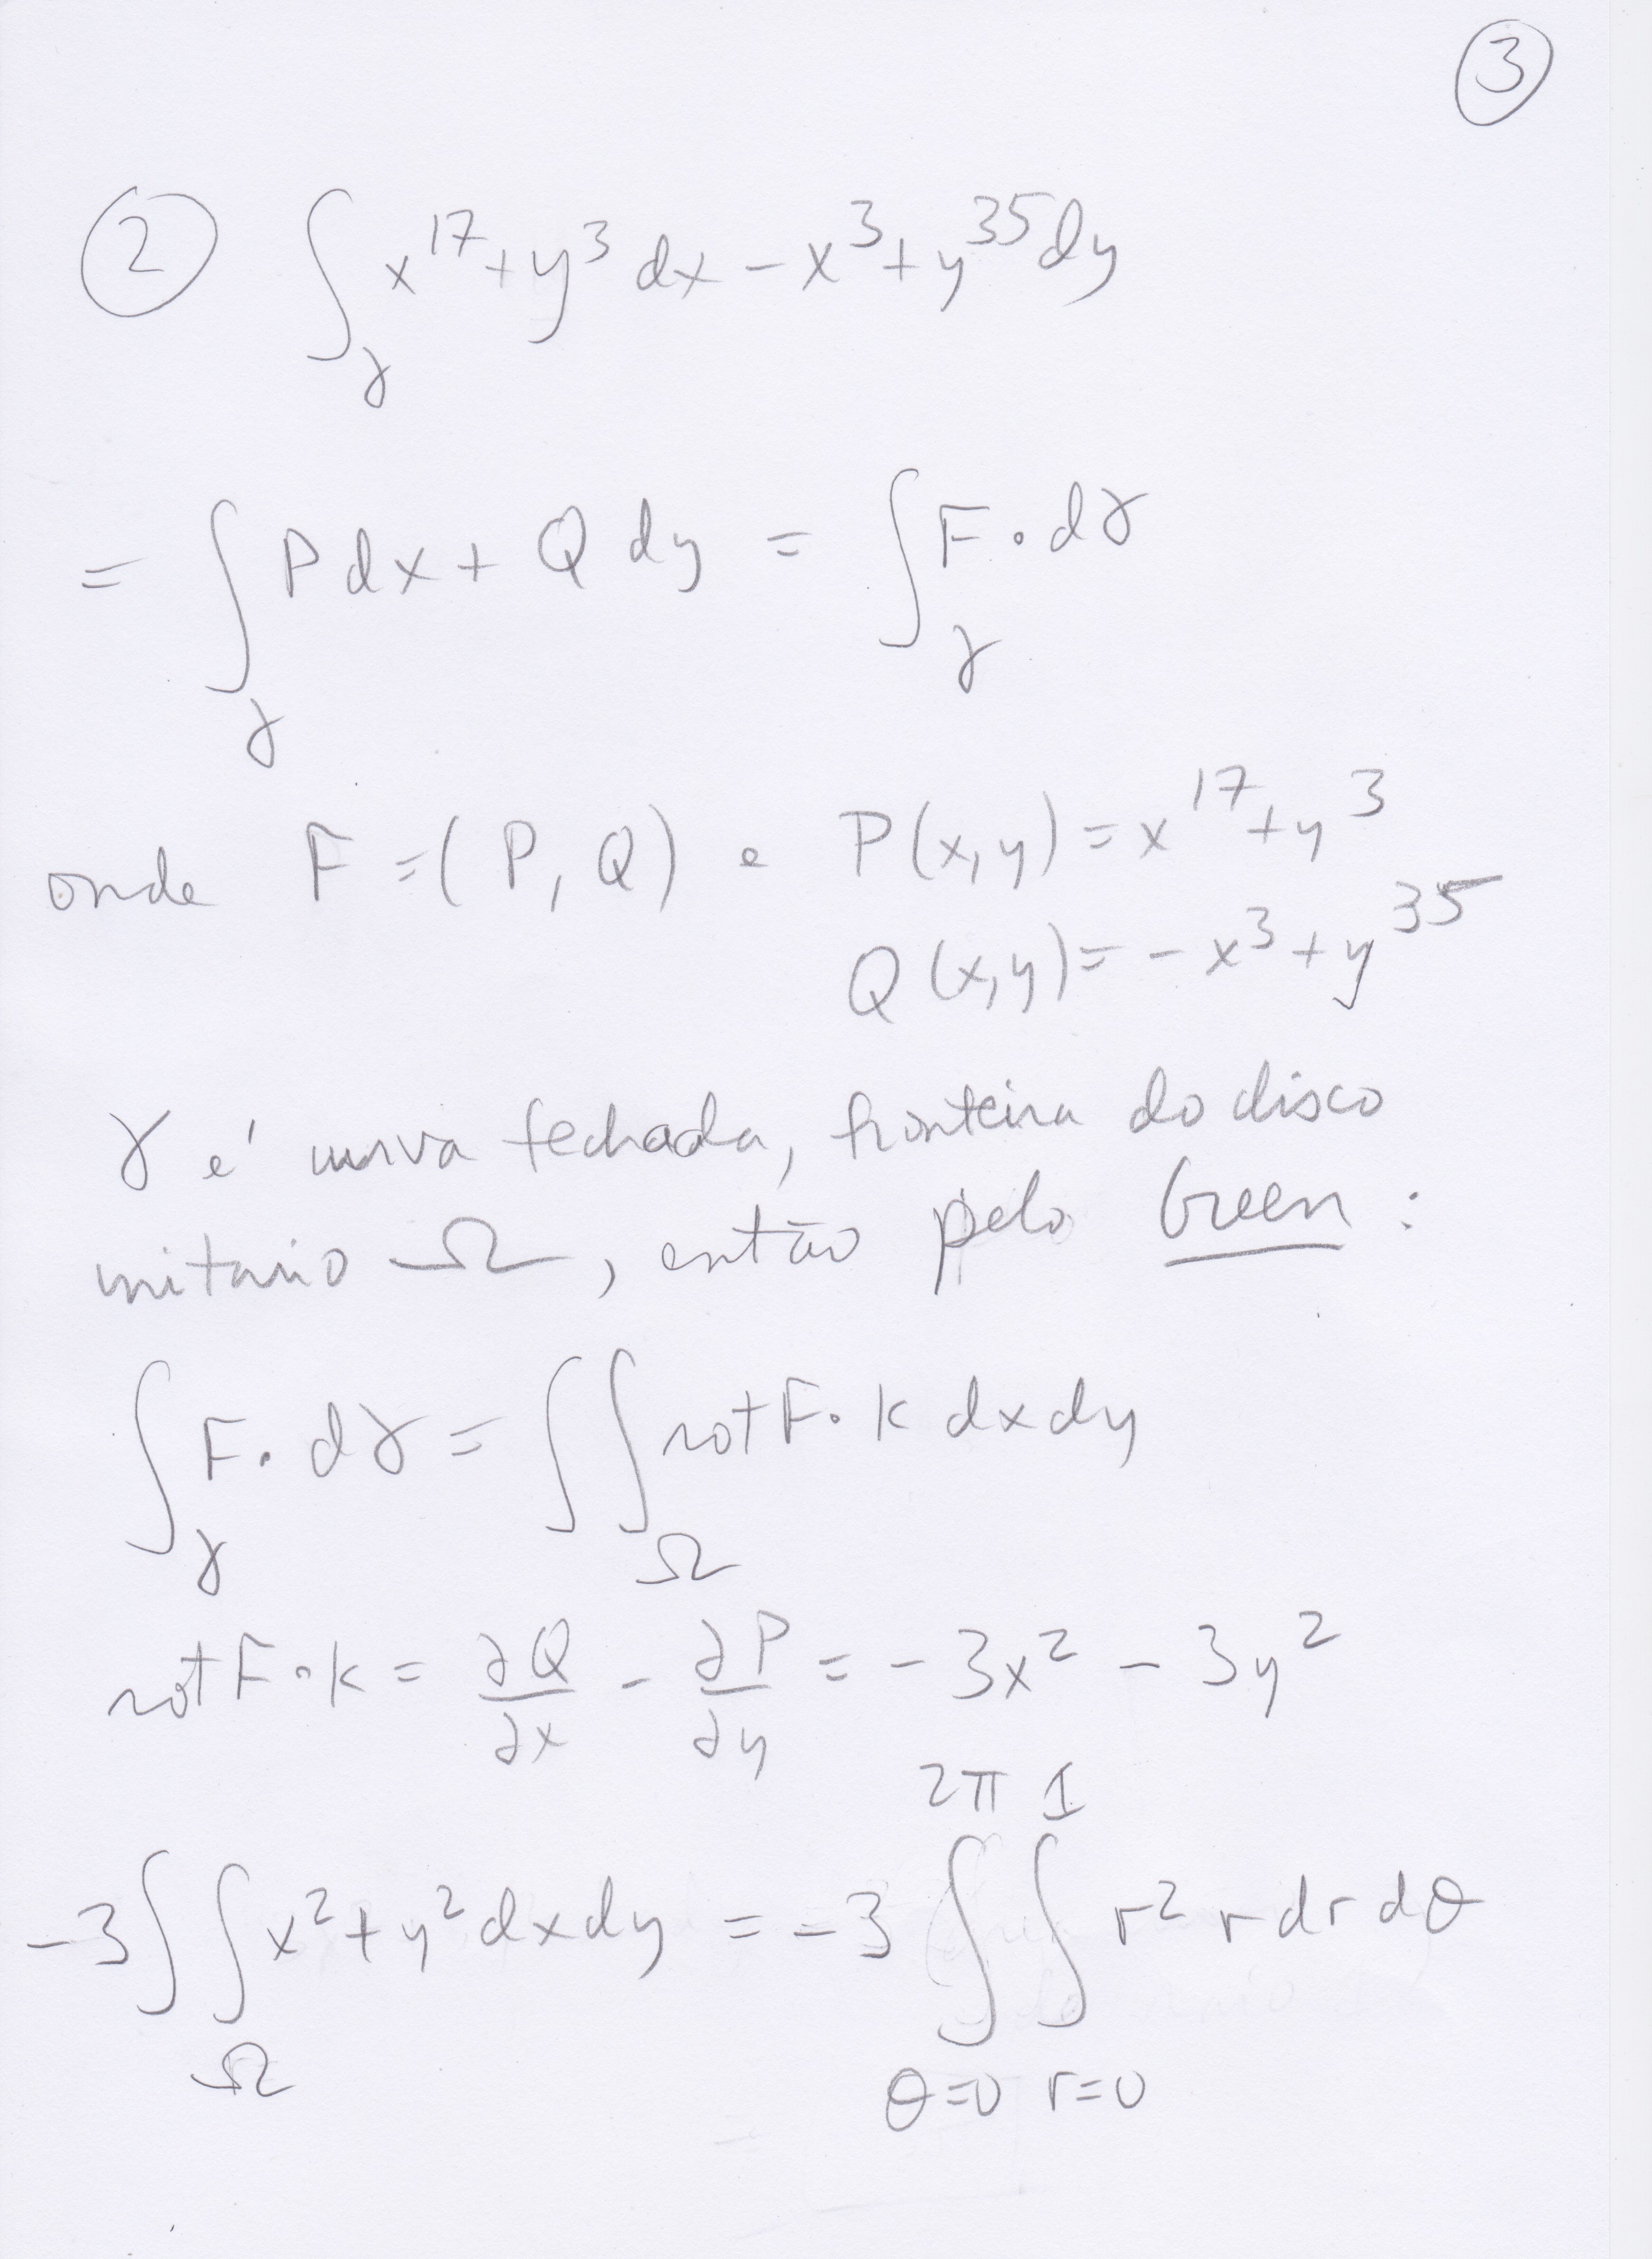 3
2 ∫_γ x^17 + y^3 dx - x^3 + y^35 dy
= ∫_γ P dx + Q dy = ∫_γ F · dγ
onde F = (P, Q) e P(x,y) = x^17 + y^3
Q(x,y) = - x^3 + y^35
γ é curva fechada, fronteira do disco
unitario Ω, então pelo Green :
∫_γ F · dγ = ∫∫_Ω rot F · k dx dy
rot F · k = ∂Q/∂x - ∂P/∂y = - 3x^2 - 3y^2
-3 ∫∫_Ω x^2 + y^2 dx dy = -3 ∫_{θ=0}^{2π} ∫_{r=0}^{1} r^2 r dr dθ